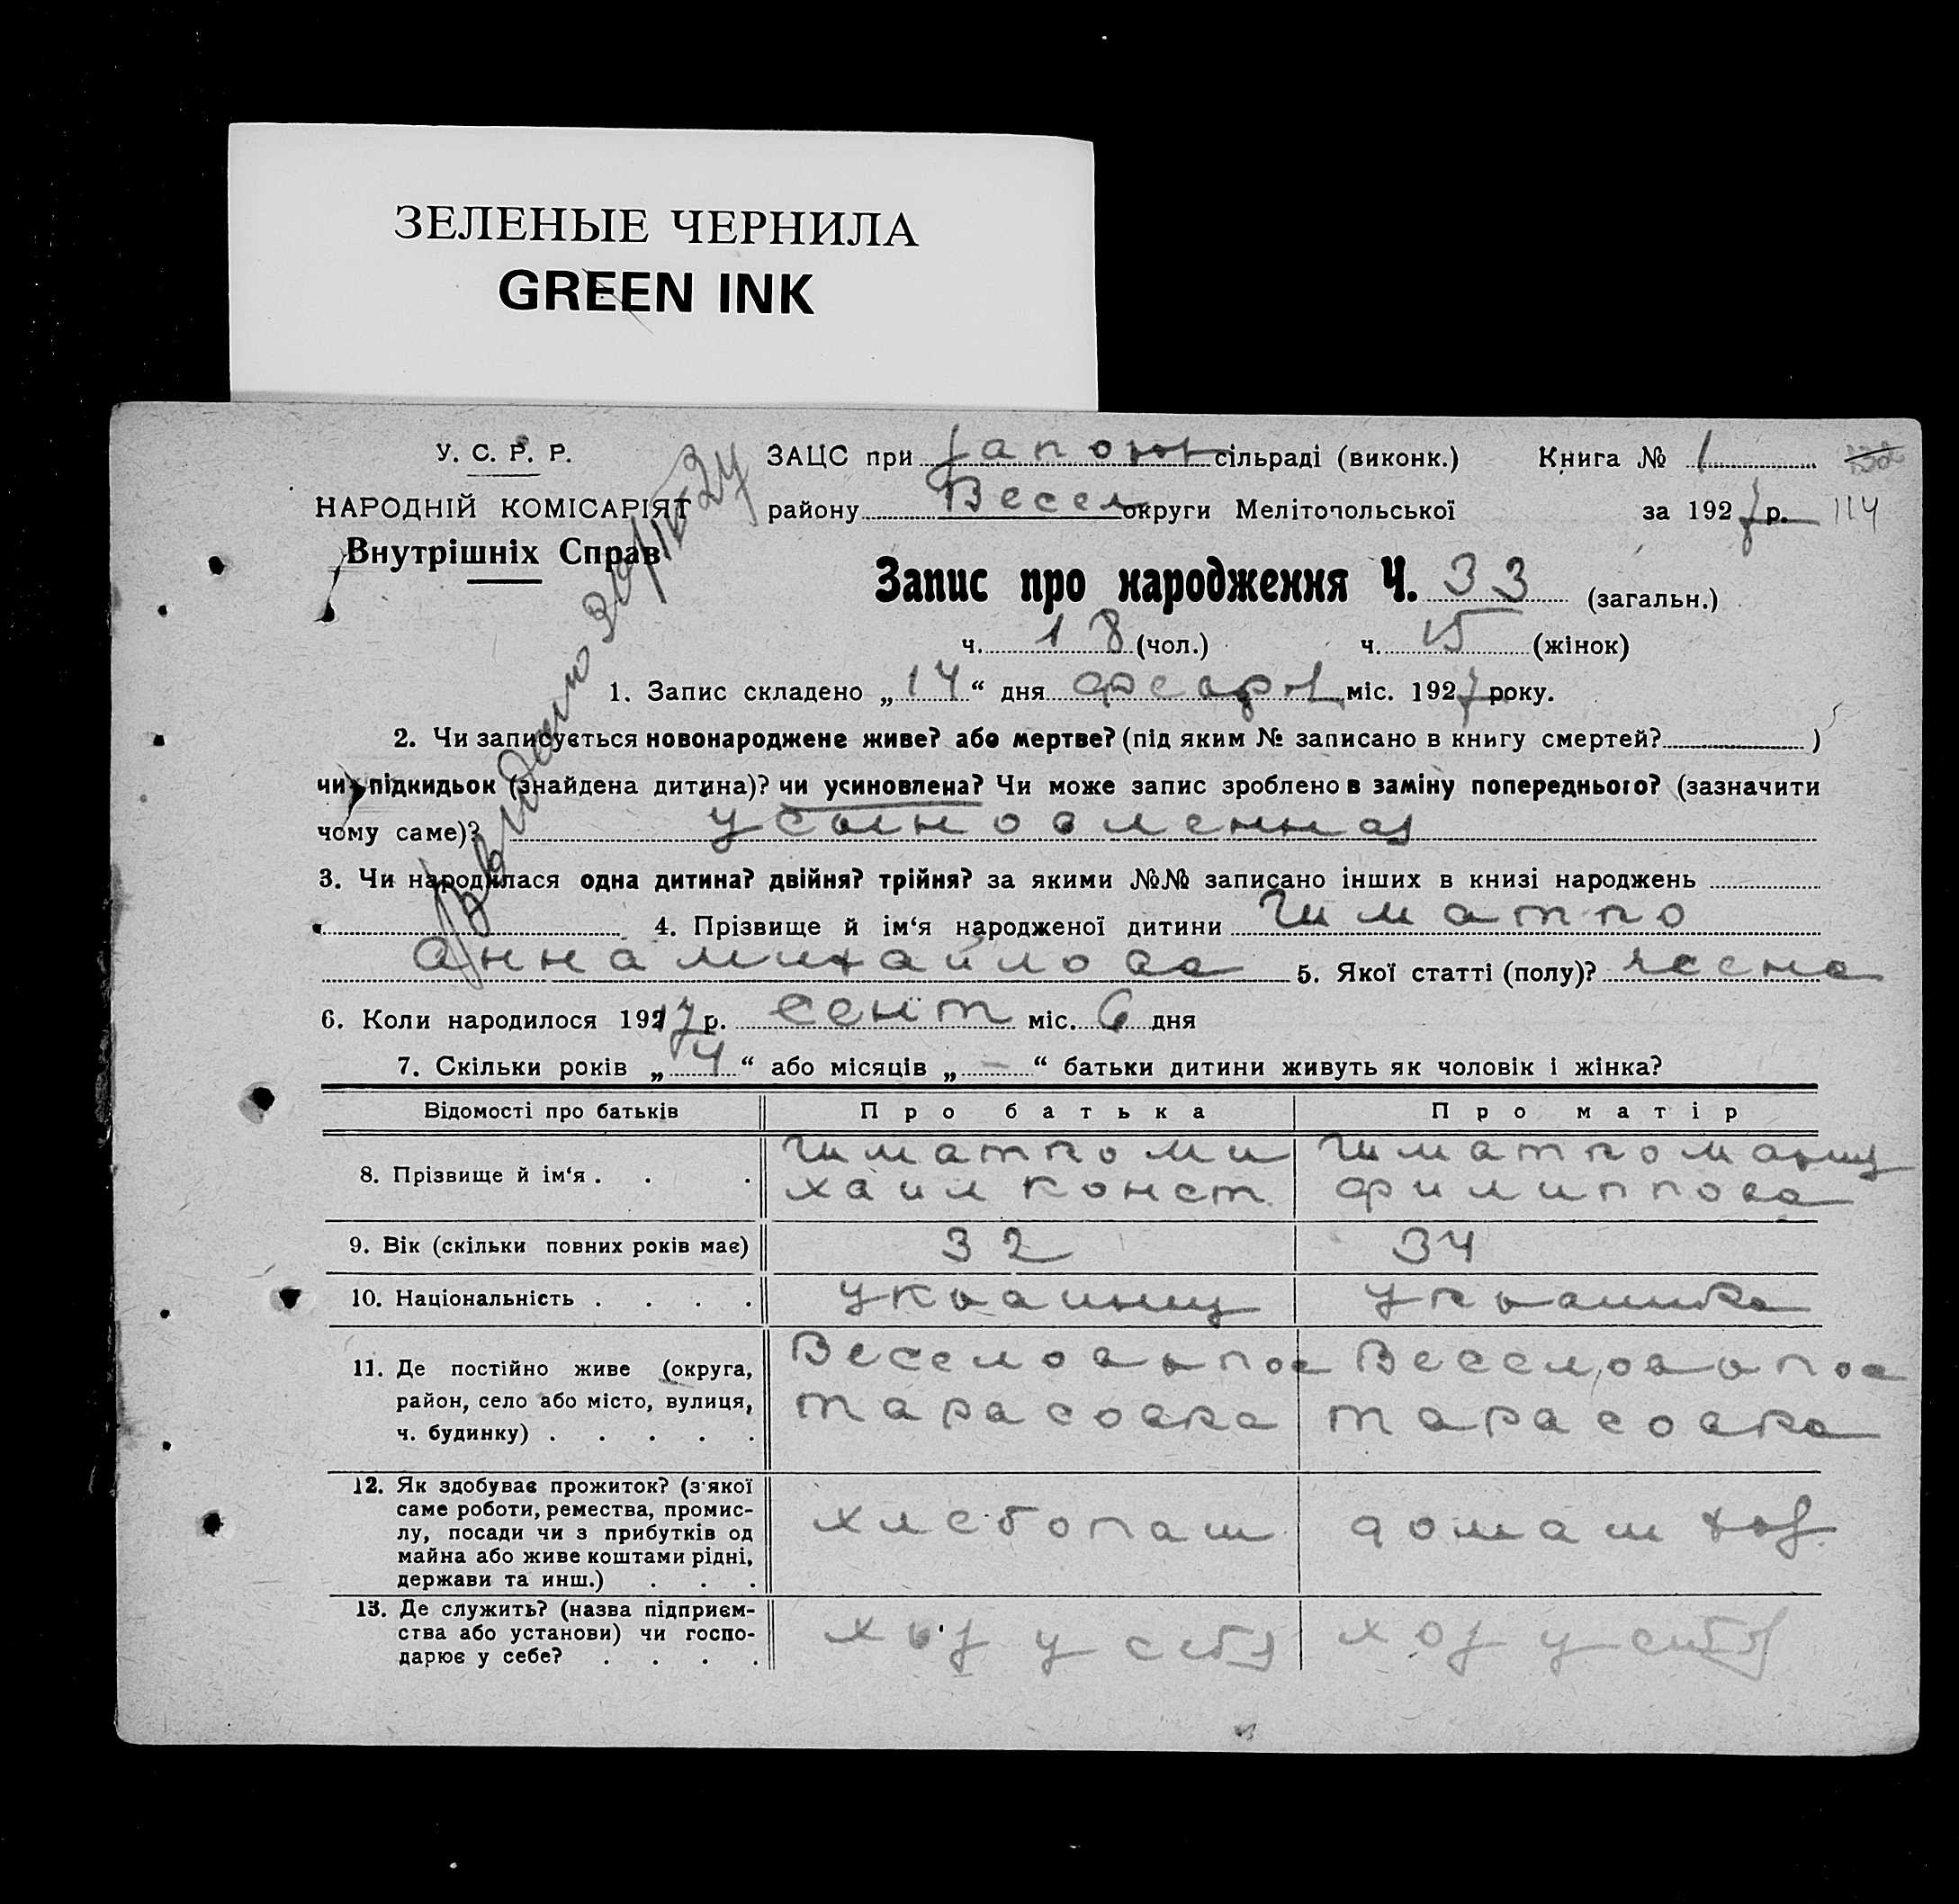 ЗЕЛЕНЫЕ ЧЕРНИЛА
GREEN INK
У. С. Р. Р.
НАРОДНІЙ КОМІСАРІЯТ
Внутрішніх Справ
ЗАЦС при сільраді (виконк.) Книга № 1
району Весел округи Мелітопольської за 1927 р. 114
Запис про народження Ч. 33 (загальн.)
ч. 18 (чол.) ч. 15 (жінок)
1. Запис складено „14“ дня міс. 1927 року.
2. Чи записується новонароджене живе? або мертве? (під яким № записано в книгу смертей? )
чи підкидьок (знайдена дитина)? чи усиновлена? Чи може запис зроблено в заміну попереднього? (зазначити
чому саме)? усыновленная
3. Чи народилася одна дитина? двійня? трійня? за якими №№ записано інших в книзі народжень
4. Прізвище й ім‘я народженої дитини
Анна михайлова 5. Якої статті (полу)?
6. Коли народилося 1917 р. сент міс. 6 дня
7. Скільки років „4“ або місяців „-“ батьки дитини живуть як чоловік і жінка?
Відомості про батьків Про батька Про матір
8. Прізвище й ім‘я . . . ми
хаил конст. филиппова
9. Вік (скільки повних років має) 32 34
10. Національність . . . .
11. Де постійно живе (округа,
район, село або місто, вулиця,
ч. будинку) . . . . .
тарасовка тарасовка
12. Як здобуває прожиток? (з'якої
саме роботи, ремества, промис-
лу, посади чи з прибутків од
майна або живе коштами рідні,
держави та инш.) . . .
хлебопаш домаш хоз.
13. Де служить? (назва підприєм-
ства або установи) чи госпо-
дарює у себе? . . . .
хоз у себя хоз у себя